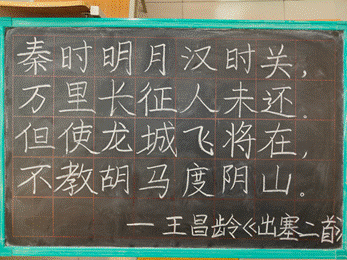 秦时明月汉时关，
万里长征人未还。
但使龙城飞将在，
不教胡马度阴山。
— 王昌龄《出塞二首》